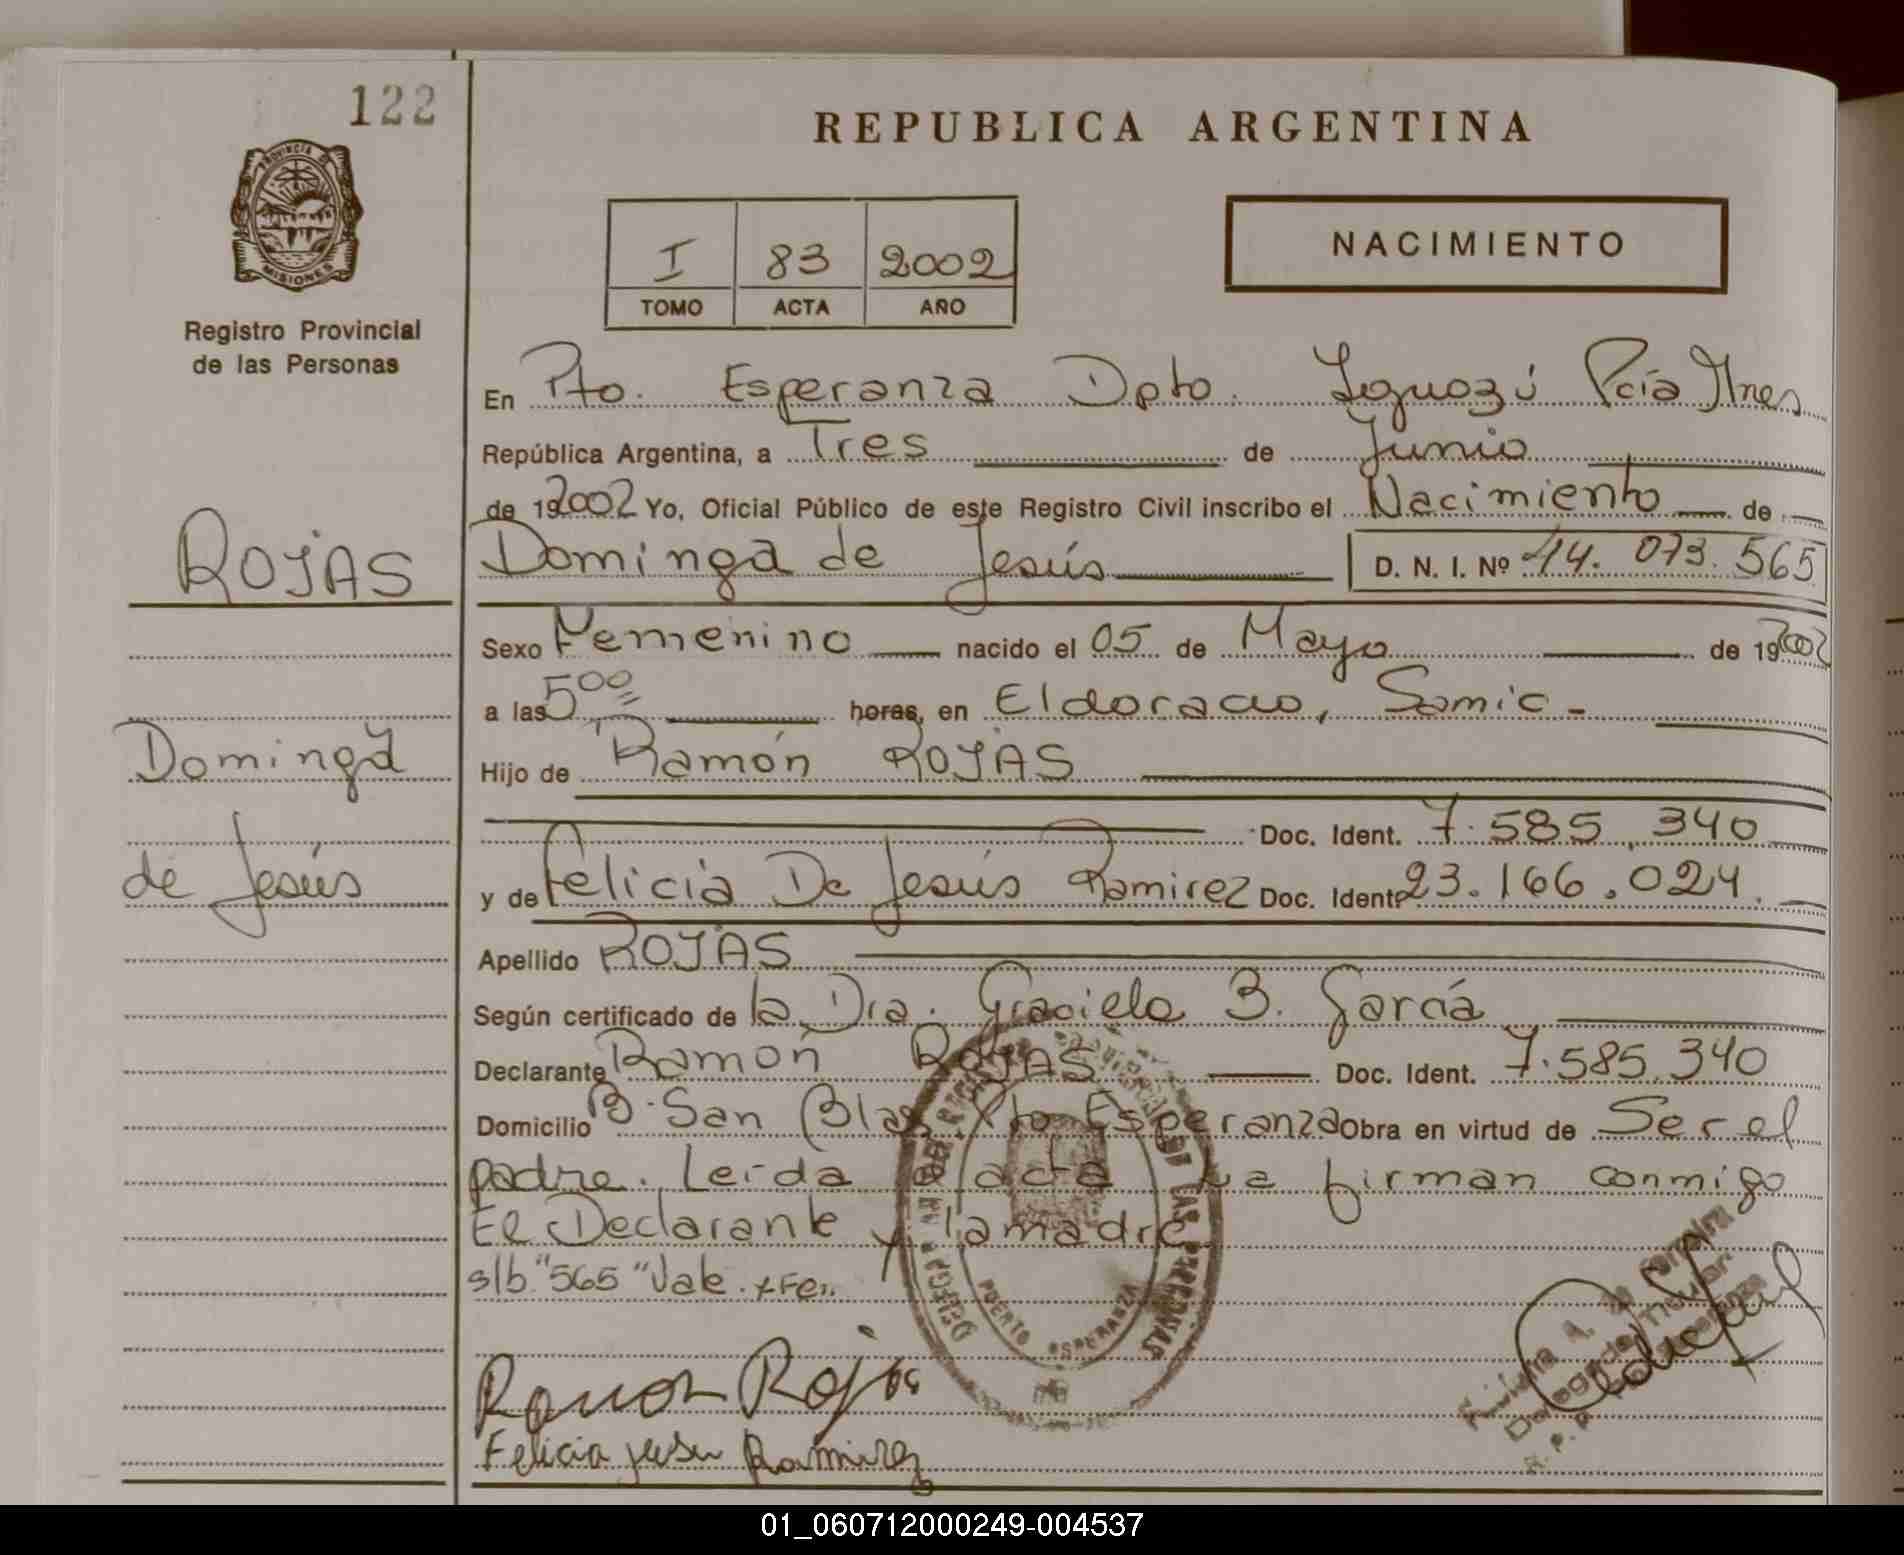 122
REPUBLICA ARGENTINA
PROVINCIA DE
MISIONES
Registro Provincial
de las Personas
I 83 2002
TOMO ACTA AÑO
NACIMIENTO
En Pto. Esperanza Dpto. Iguazú Pcia Mnes
República Argentina, a Tres de Junio
de 192002 Yo, Oficial Público de este Registro Civil inscribo el Nacimiento de
ROJAS
Dominga de Jesús D. N. I. Nº 44. 073. 565
Sexo Femenino nacido el 05 de Mayo de 192002
a las 5 00 horas, en Eldorado, Samic.-
Dominga
Hijo de Ramón ROJAS
Doc. Ident. 7.585.340
de Jesús
y de Felicia De Jesús Ramirez Doc. Ident. 23.166.024.
Apellido ROJAS
Según certificado de la Dra. Graciela B. García
Declarante Ramón ROJAS Doc. Ident. 7.585.340
Domicilio B. San Blas Pto Esperanza Obra en virtud de Ser el
padre. Leída el acta la firman conmigo
El Declarante y la madre
s/b "565" Vale.
Ramon Rojas
Felicia Jesu Ramirez
PUERTO ESPERANZA
01_060712000249-004537